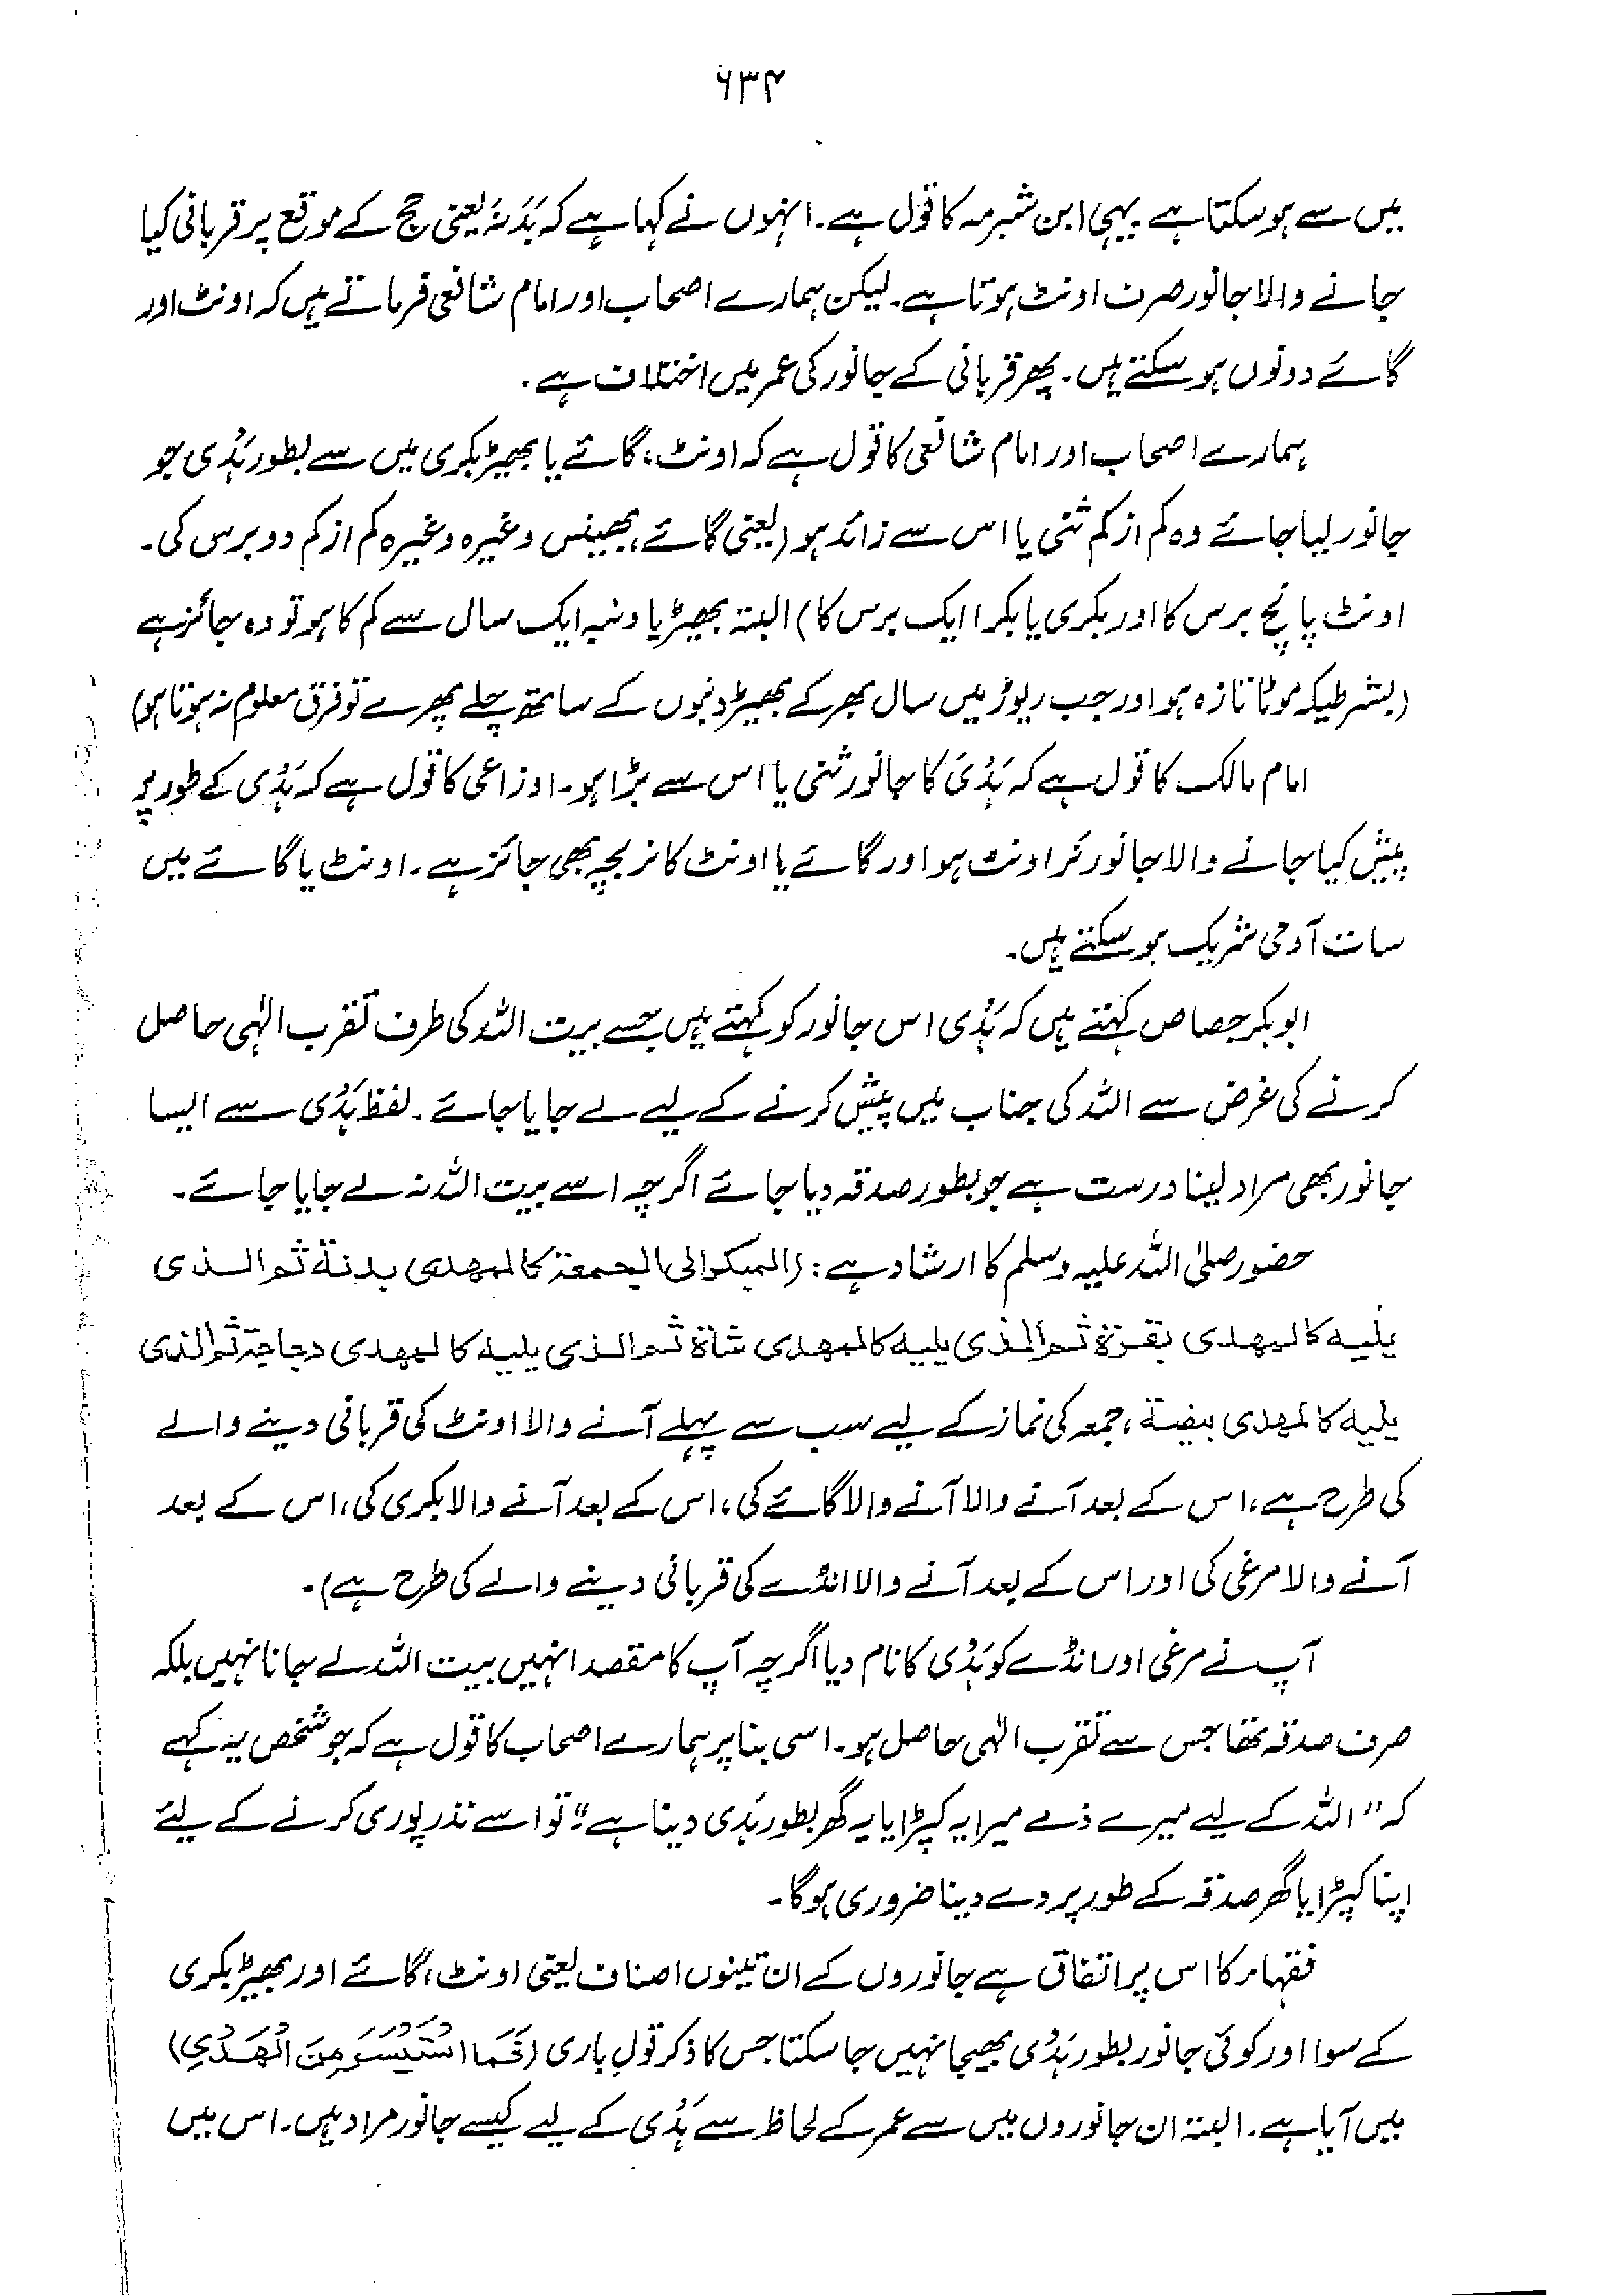 ۶۳۴
میں سے ہو سکتا ہے یہی ابن شبرمہ کا قول ہے۔ انہوں نے کہا ہے کہ بَدَنَہ یعنی حج کے موقع پر قربانی کیا
جانے والا جانور صرف اونٹ ہوتا ہے۔ لیکن ہمارے اصحاب اور امام شافعی فرماتے ہیں کہ اونٹ اور
گائے دونوں ہو سکتے ہیں۔ پھر قربانی کے جانور کی عمر میں اختلاف ہے۔
ہمارے اصحاب اور امام شافعی کا قول ہے کہ اونٹ، گائے یا بھیڑ بکری میں سے بطور ہَدْی جو
جانور لیا جائے وہ کم از کم ثنی یا اس سے زائد ہو (یعنی گائے، بھینس وغیرہ وغیرہ کم از کم دو برس کی۔
اونٹ پانچ برس کا اور بکری یا بکرا ایک برس کا) البتہ بھیڑ یا دنبہ ایک سال سے کم کا ہو تو وہ جائز ہے
(بشرطیکہ موٹا تازہ ہو اور جب ریوڑ میں سال بھر کے بھیڑ دنبوں کے ساتھ چلے پھرے تو فرق معلوم نہ ہوتا ہو)
امام مالک کا قول ہے کہ ہَدْیَ کا جانور ثنی یا اس سے بڑا ہو۔ اوزاعی کا قول ہے کہ ہَدْی کے طور پر
پیش کیا جانے والا جانور نَر اونٹ ہو اور گائے یا اونٹ کا نر بچہ بھی جائز ہے۔ اونٹ یا گائے میں
سات آدمی شریک ہو سکتے ہیں۔
ابوبکر جصاص کہتے ہیں کہ ہَدْی اس جانور کو کہتے ہیں جسے بیت اللہ کی طرف تقرب الٰہی حاصل
کرنے کی غرض سے اللہ کی جناب میں پیش کرنے کے لیے لے جایا جائے۔ لفظ ہَدْی سے ایسا
جانور بھی مراد لینا درست ہے جو بطور صدقہ دیا جائے اگرچہ اسے بیت اللہ نہ لے جایا جائے۔
حضور صلی اللہ علیہ وسلم کا ارشاد ہے: (المبکر الی الجمعة کالمهدی بدنة ثم الذی
یلیه کالمهدی بقرة ثم الذی یلیه کالمهدی شاة ثم الذی یلیه کالمهدی دجاجة ثم الذی
یلیه کالمهدی بیضة، جمعہ کی نماز کے لیے سب سے پہلے آنے والا اونٹ کی قربانی دینے والے
کی طرح ہے، اس کے بعد آنے والا آنے والا گائے کی، اس کے بعد آنے والا بکری کی، اس کے بعد
آنے والا مرغی کی اور اس کے بعد آنے والا انڈے کی قربانی دینے والے کی طرح ہے)۔
آپ نے مرغی اور انڈے کو ہَدْی کا نام دیا اگرچہ آپ کا مقصد انہیں بیت اللہ لے جانا نہیں بلکہ
صرف صدقہ تھا جس سے تقرب الٰہی حاصل ہو۔ اسی بنا پر ہمارے اصحاب کا قول ہے کہ جو شخص یہ کہے
کہ "اللہ کے لیے میرے ذمے میرا یہ کپڑا یا یہ گھر بطور ہَدی دینا ہے" تو اسے نذر پوری کرنے کے لیئے
اپنا کپڑا یا گھر صدقہ کے طور پر دے دینا ضروری ہوگا۔
فقہاء کا اس پر اتفاق ہے جانوروں کے ان تینوں اصناف یعنی اونٹ، گائے اور بھیڑ بکری
کے سوا اور کوئی جانور بطور ہَدْی بھیجا نہیں جا سکتا جس کا ذکر قول باری (فَمَا اسْتَيْسَرَ مِنَ الْهَدْيِ)
میں آیا ہے۔ البتہ ان جانوروں میں سے عمر کے لحاظ سے ہَدْی کے لیے کیسے جانور مراد ہیں۔ اس میں